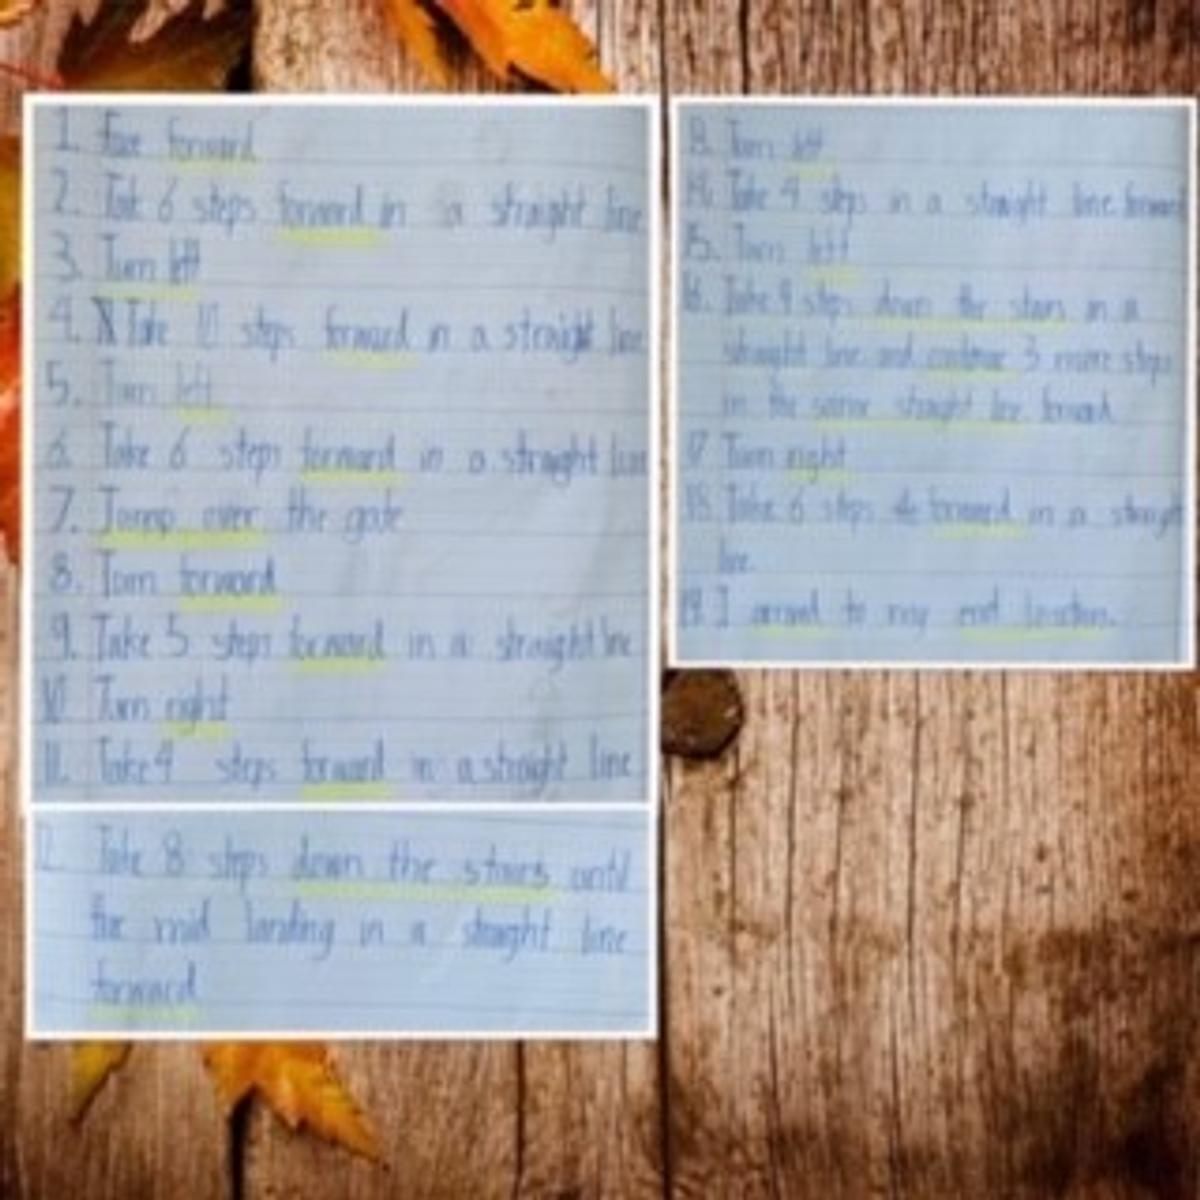 1. Face forward
2. Take 6 steps forward in a straight line
3. Turn left
4. Take 10 steps forward in a straight line
5. Turn left
6. Take 6 steps forward in a straight line
7. Jump over the gate
8. Turn forward
9. Take 5 steps forward in a straight line
10 Turn right
11. Take 4 steps forward in a straight line
12. Take 8 steps down the stairs until
the mid landing in a straight line
forward
13. Turn left
14. Take 4 steps in a straight line forward
15. Turn left
16. Take 9 steps down the stairs in a
straight line and continue 3 more steps
in the same straight line forward
17 Turn right
18. Take 6 steps forward in a straight
line.
19. I arrived to my end location.